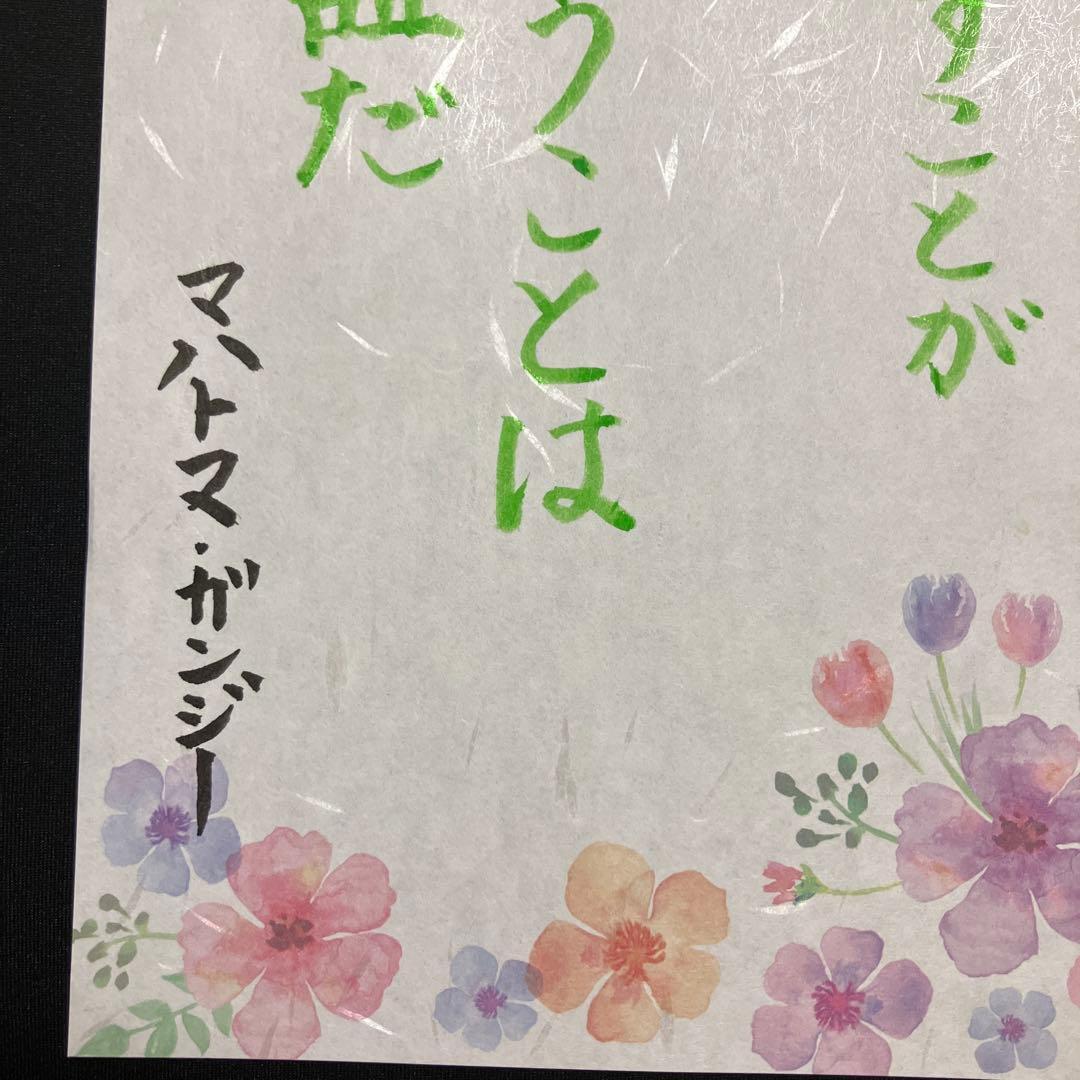 すことが
うことは
だ
マハトマ・ガンジー